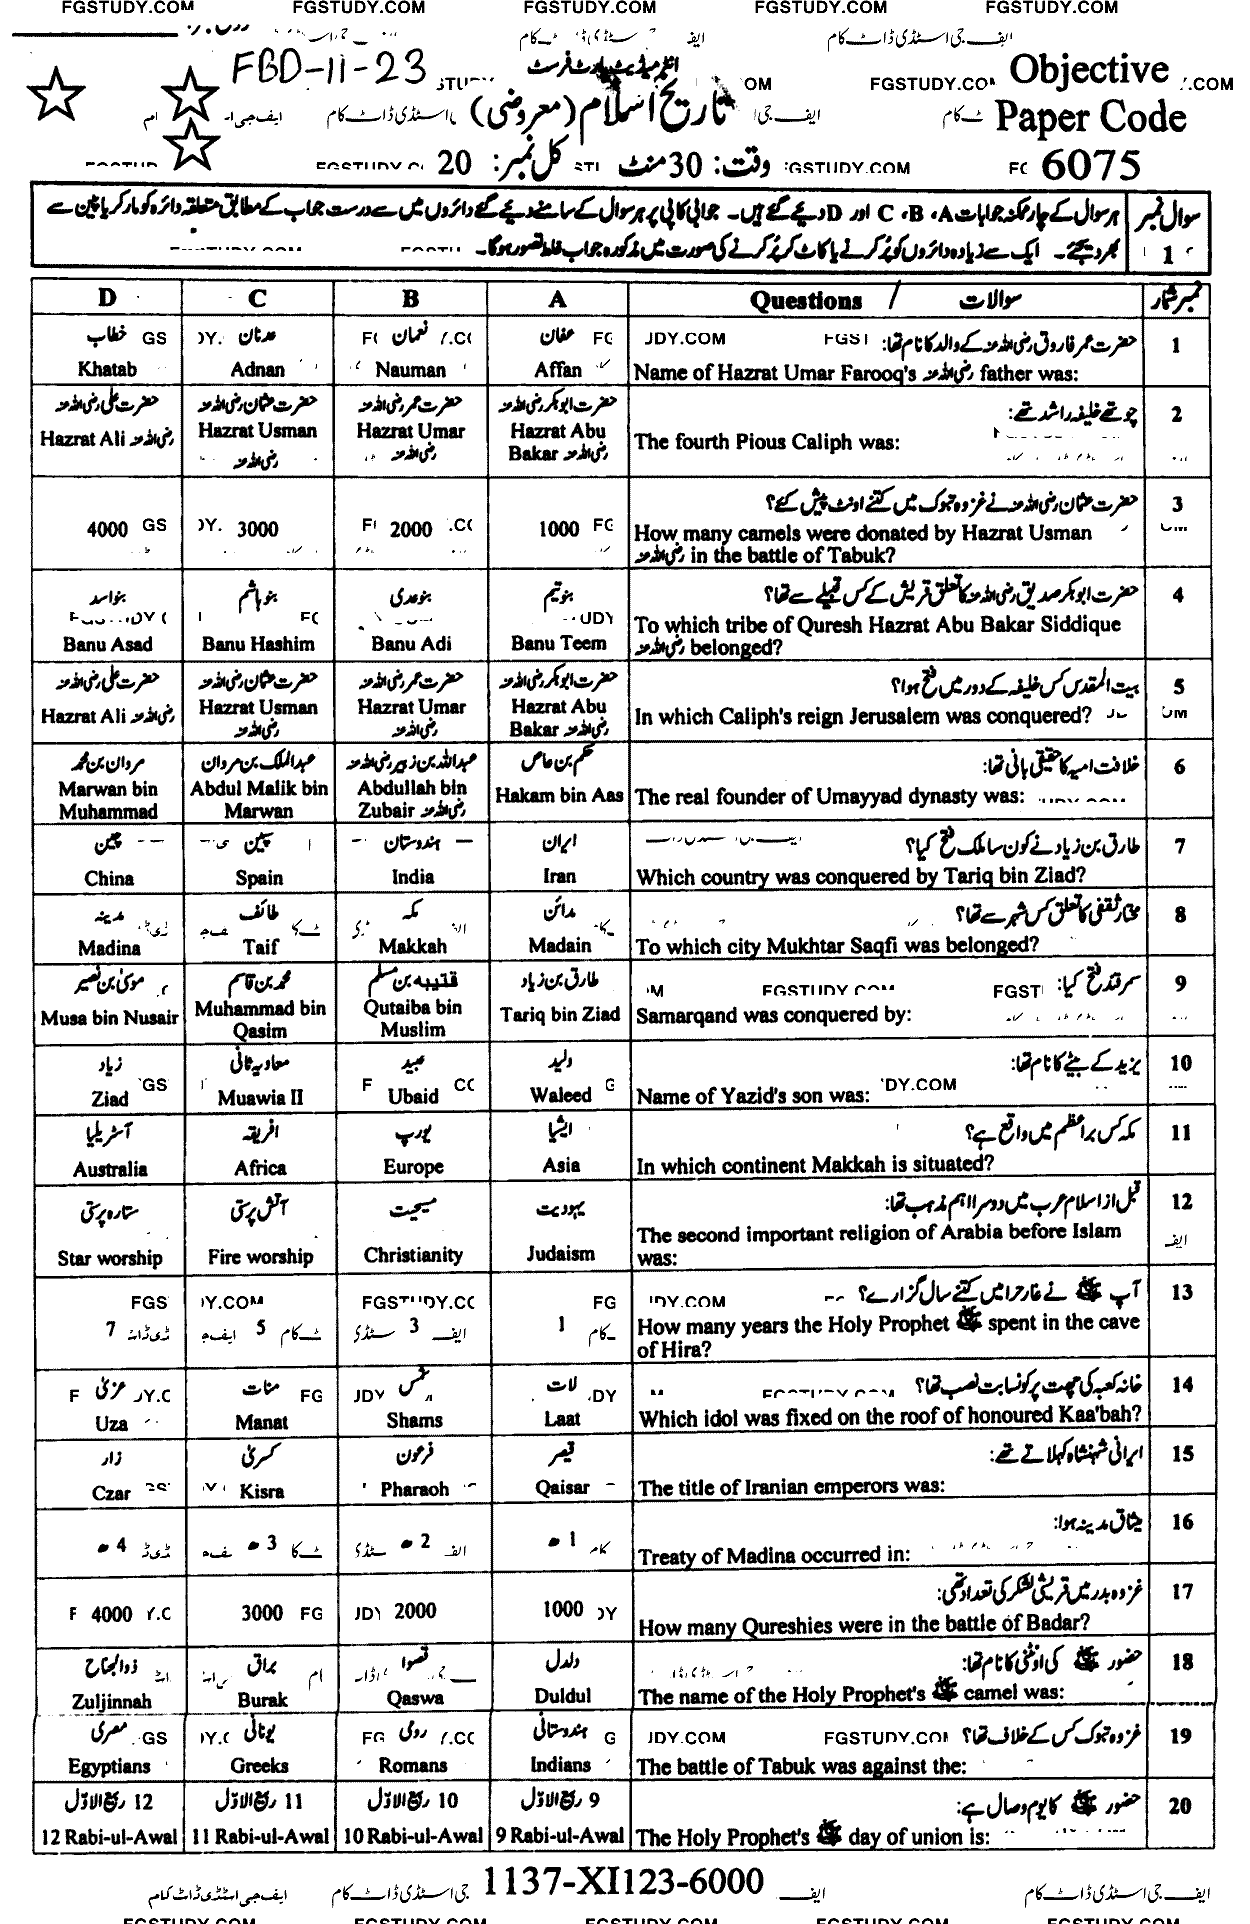 FGSTUDY.COM FGSTUDY.COM FGSTUDY.COM FGSTUDY.COM FGSTUDY.COM
FBD-11-23
انٹرمیڈیٹ پارٹ فرسٹ
Objective
تاریخ اسلام (معروضی)
Paper Code
وقت: 30 منٹ کل نمبر: 20
6075
سوال نمبر 1
ہر سوال کے چار ممکنہ جوابات A، B، C اور D دیئے گئے ہیں۔ جوابی کاپی پر ہر سوال کے سامنے دیئے گئے دائروں میں سے درست جواب کے مطابق متعلقہ دائرہ کو مارکر یا پین سے
بھر دیجئے۔ ایک سے زیادہ دائروں کو پُر کرنے یا کاٹ کر پُر کرنے کی صورت میں مذکورہ جواب غلط تصور ہوگا۔
نمبر شمار سوالات / Questions A B C D
1 حضرت عمر فاروق رضی اللہ عنہ کے والد کا نام تھا: عفان نعمان عدنان خطاب
Name of Hazrat Umar Farooq's رضی اللہ عنہ father was: Affan Nauman Adnan Khatab
2 چوتھے خلیفہ راشد تھے: حضرت ابوبکر رضی اللہ عنہ حضرت عمر رضی اللہ عنہ حضرت عثمان رضی اللہ عنہ حضرت علی رضی اللہ عنہ
The fourth Pious Caliph was: Hazrat Abu Bakar رضی اللہ عنہ Hazrat Umar رضی اللہ عنہ Hazrat Usman رضی اللہ عنہ Hazrat Ali رضی اللہ عنہ
3 حضرت عثمان رضی اللہ عنہ نے غزوہ تبوک میں کتنے اونٹ پیش کئے؟
How many camels were donated by Hazrat Usman
رضی اللہ عنہ in the battle of Tabuk? 1000 2000 3000 4000
4 حضرت ابوبکر صدیق رضی اللہ عنہ کا تعلق قریش کے کس قبیلے سے تھا؟ بنو تیم بنو عدی بنو ہاشم بنو اسد
To which tribe of Quresh Hazrat Abu Bakar Siddique
رضی اللہ عنہ belonged? Banu Teem Banu Adi Banu Hashim Banu Asad
5 بیت المقدس کس خلیفہ کے دور میں فتح ہوا؟ حضرت ابوبکر رضی اللہ عنہ حضرت عمر رضی اللہ عنہ حضرت عثمان رضی اللہ عنہ حضرت علی رضی اللہ عنہ
In which Caliph's reign Jerusalem was conquered? Hazrat Abu Bakar رضی اللہ عنہ Hazrat Umar رضی اللہ عنہ Hazrat Usman رضی اللہ عنہ Hazrat Ali رضی اللہ عنہ
6 خلافت امیہ کا حقیقی بانی تھا: حکم بن عاص عبداللہ بن زبیر رضی اللہ عنہ عبدالملک بن مروان مروان بن محمد
The real founder of Umayyad dynasty was: Hakam bin Aas Abdullah bin Zubair رضی اللہ عنہ Abdul Malik bin Marwan Marwan bin Muhammad
7 طارق بن زیاد نے کون سا ملک فتح کیا؟ ایران ہندوستان سپین چین
Which country was conquered by Tariq bin Ziad? Iran India Spain China
8 مختار ثقفی کا تعلق کس شہر سے تھا؟ مدائن مکہ طائف مدینہ
To which city Mukhtar Saqfi was belonged? Madain Makkah Taif Madina
9 سمرقند فتح کیا: طارق بن زیاد قتیبہ بن مسلم محمد بن قاسم موسیٰ بن نصیر
Samarqand was conquered by: Tariq bin Ziad Qutaiba bin Muslim Muhammad bin Qasim Musa bin Nusair
10 یزید کے بیٹے کا نام تھا: ولید عبید معاویہ ثانی زیاد
Name of Yazid's son was: Waleed Ubaid Muawia II Ziad
11 مکہ کس براعظم میں واقع ہے؟ ایشیا یورپ افریقہ آسٹریلیا
In which continent Makkah is situated? Asia Europe Africa Australia
12 قبل از اسلام عرب میں دوسرا اہم مذہب تھا: یہودیت مسیحیت آتش پرستی ستارہ پرستی
The second important religion of Arabia before Islam
was: Judaism Christianity Fire worship Star worship
13 آپ ﷺ نے غار حرا میں کتنے سال گزارے؟
How many years the Holy Prophet ﷺ spent in the cave
of Hira? 1 3 5 7
14 خانہ کعبہ کی چھت پر کونسا بت نصب تھا؟ لات شمس منات عزیٰ
Which idol was fixed on the roof of honoured Kaa'bah? Laat Shams Manat Uza
15 ایرانی شہنشاہ کہلاتے تھے: قیصر فرعون کسریٰ زار
The title of Iranian emperors was: Qaisar Pharaoh Kisra Czar
16 میثاق مدینہ ہوا:
Treaty of Madina occurred in: 1ھ 2ھ 3ھ 4ھ
17 غزوہ بدر میں قریشی لشکر کی تعداد تھی:
How many Qureshies were in the battle of Badar? 1000 2000 3000 4000
18 حضور ﷺ کی اونٹنی کا نام تھا: دلدل قصوا براق ذوالجناح
The name of the Holy Prophet's ﷺ camel was: Duldul Qaswa Burak Zuljinnah
19 غزوہ تبوک کس کے خلاف تھا؟ ہندوستانی رومی یونانی مصری
The battle of Tabuk was against the: Indians Romans Greeks Egyptians
20 حضور ﷺ کا یوم وصال ہے: 9 ربیع الاوّل 10 ربیع الاوّل 11 ربیع الاوّل 12 ربیع الاوّل
The Holy Prophet's ﷺ day of union is: 9 Rabi-ul-Awal 10 Rabi-ul-Awal 11 Rabi-ul-Awal 12 Rabi-ul-Awal
1137-XI123-6000